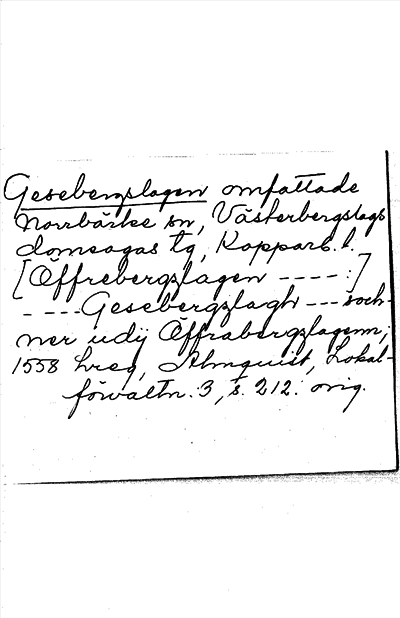 Gesebergslagen omfattade
Norrbärke sn, Västerbergslags
domsagas tg, Kopparb. l.
[Öffrebergzlagen ----:]
----Gesebergzlagh --- soch-
ner udij Öffrabergzlagenn,
1558 hreg, Almquist, Lokal-
förvaltn. 3, s. 212. orig.